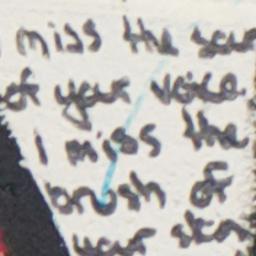 miss the sound
of your voice.
I miss the
brush of
your skin